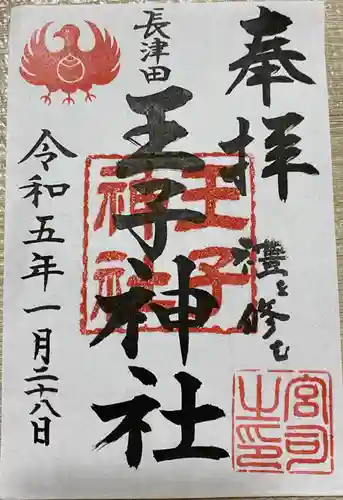 奉拝
禮を修む
長津田
王子神社
令和五年一月二十八日
王子神社
宮司之印